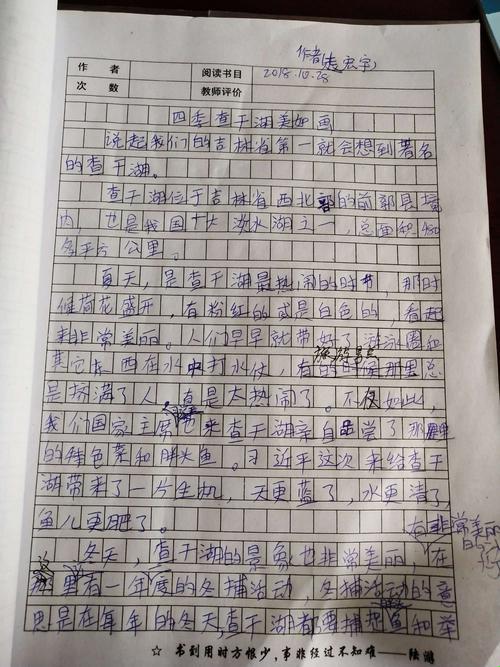 作者
2018.10.28
作 者
阅读书目
次 数
教师评价
四季查干湖美如画
说起我们的吉林省第一就会想到著名
的查干湖。
查干湖位于吉林省西北部的前郭县境
内，也是我国十大淡水湖之一，总面积480
多平方公里。
夏天，是查干湖最热闹的时节，那时
候荷花盛开，有粉红的或是白色的，看起
来非常美丽。人们早早就带好了游泳圈和
其它东西在水中打水仗，有的时候那里总
是挤满了人。真是太热闹了。不仅如此，
我们国家主席也来查干湖亲自品尝了那里
的特色菜和胖头鱼。习近平这次来给查干
湖带来了一片生机，天更蓝了，水更清了，
鱼儿更肥了。
有非常美丽的
冬天，查干湖的景象也非常美丽，在
这里有一年度的冬捕活动，冬捕活动的意
思是在每年的冬天，查干湖都要捕把鱼和举
☆ 书到用时方恨少，事非经过不知难——陆游